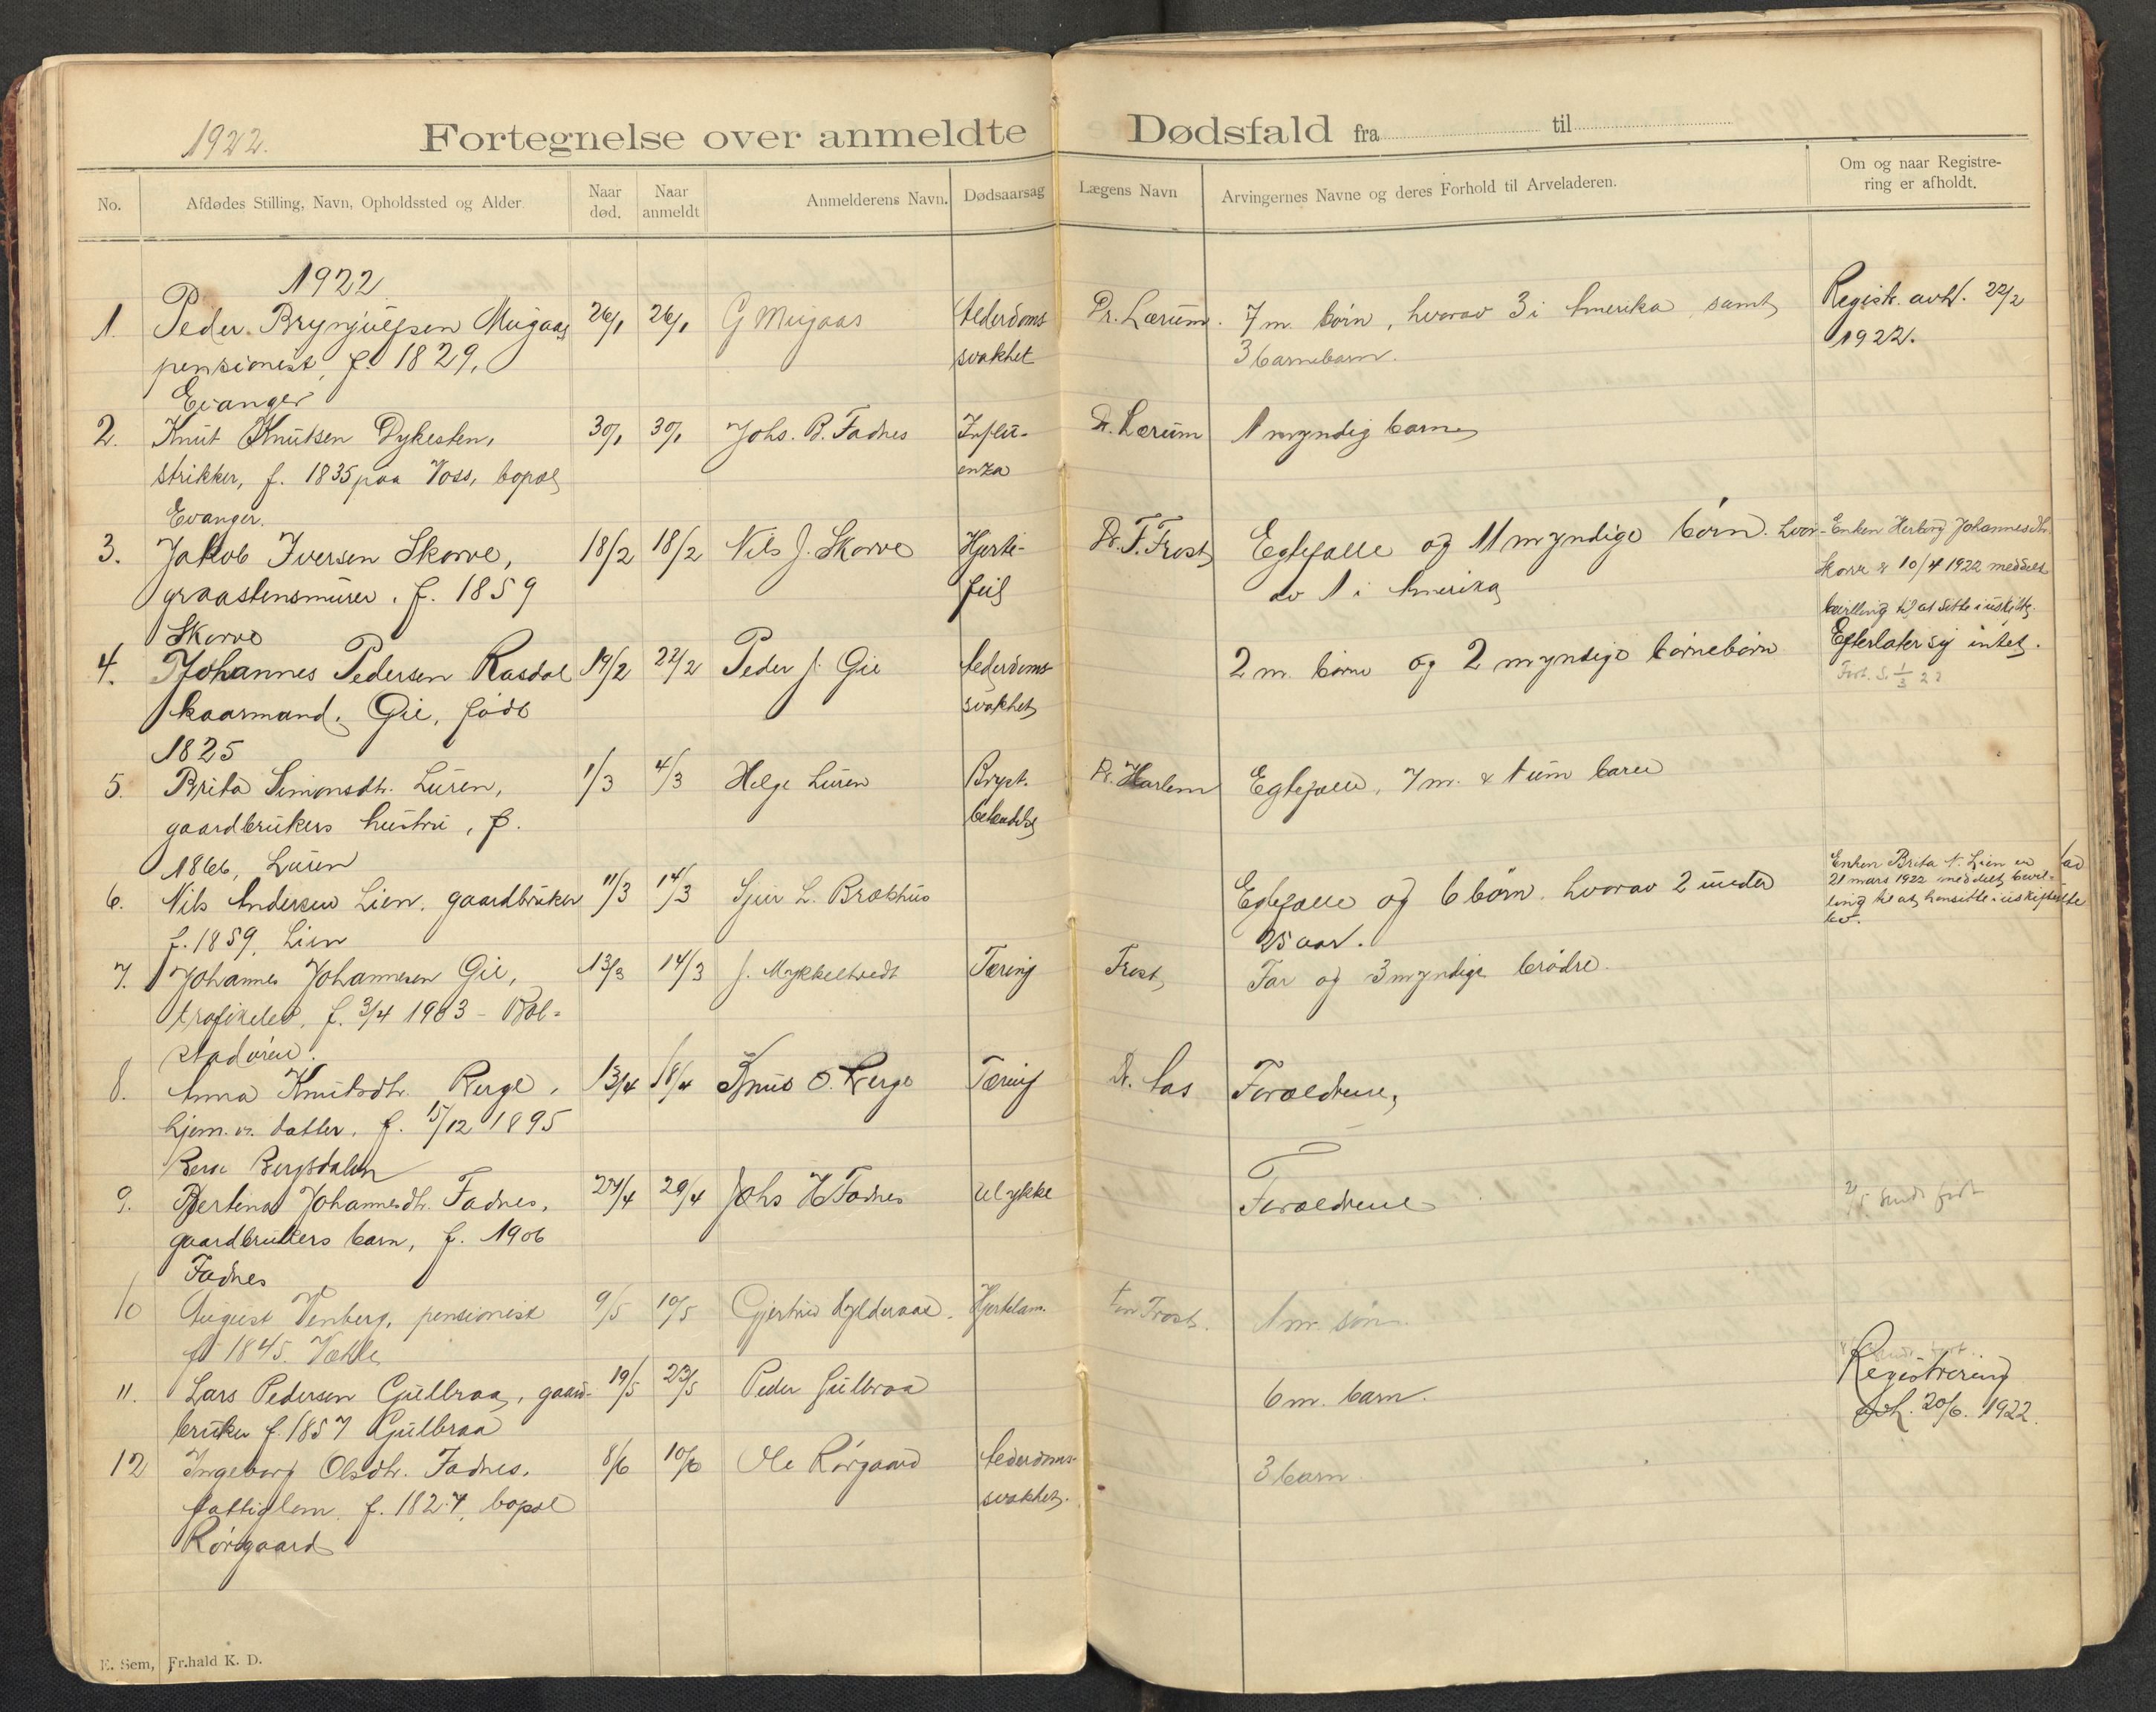 1922.
Fortegnelse over anmeldte Dødsfald fra til
No. Afdødes Stilling, Navn, Opholdssted og Alder Naar død. Naar anmeldt Anmelderens Navn. Dødsaarsag Lægens Navn Arvingernes Navne og deres Forhold til Arveladeren. Om og naar Registre-
ring er afholdt.
1922
1. Peder Brynjulfsen Mugaas 26/1 26/1 G Mugaas Alderdoms Dr. Lærum. 7 m. børn, hvorav 3 i Amerika samt Registr. avh. 22/2
pensionist, f. 1829, svakhet 3 barnebarn. 1922.
Evanger
2. Knut Knutsen Dykesten, 30/1 30/1 Johs. B. Fadnes Influ- Dr. Lærum 1 myndig barn
strikker, f. 1835 paa Voss, bopæl enza
Evanger.
3. Jakob Iversen Skorve, 18/2 18/2 Nils J. Skorve Hjerte- Dr. F. Frost Egtefælle og 11 myndige børn. hvor- Enken Herborg Johannesdtr.
graastensmurer. f. 1859 feil av 1 i Amerika Skorve 10/4 1922 meddelt
Skorve bevilling til at sitte i uskifte.
4. Johannes Pedersen Rasdal 19/2 22/2 Peder J. Gie Alderdoms- 2 m. børn og 2 myndige børnebørn Efterlater sig intet.
kaarmand. Gie, født svakhet
1825
5. Brita Simonsdtr. Luren, 1/3 4/3 Helge Luren Bryst- Dr. Harlem Egtefælle, 7 m. & 1 um barn
gaardbrukers hustru, f. betendelse
1866, Luren
6. Nils Andersen Lien. gaardbruker 11/3 14/3 Sjur L. Brækhus Egtefælle og 6 børn. hvorav 2 under Enken Brita N. Lien er
f. 1859. Lien 25 aar. 21 mars 1922 meddelt bevil-
ling til at hensitte i uskiftet
bo.
7. Johannes Johannesen Gie, 13/3 14/3 J. Mykkeltvedt Tæring Frost Far og 3 myndige brødre.
trafikelev, f. 3/4 1903 - Bol-
stadøren.
8. Anna Knutsdtr. Berge, 13/4 18/4 Knut O. Berge Tæring Dr. Aas Forældrene,
hjem.v. datter. f. 15/12 1895
Berge Bergsdalen
9. Bertina Johannesdtr. Fadnes, 27/4 29/4 Johs H Fadnes Ulykke Forældrene
gaardbrukers barn, f. 1906
Fadnes
10 August Venberg, pensionist 9/5 10/5 Gjertrud Hjertelam. Frost. 1 m. søn.
f. 1845.
11. Lars Pedersen Gulbraa, gaard- 19/5 23/5 Peder Gulbraa 6 m. barn. Registrering
bruker f. 1857 Gulbraa avh. 20/6. 1922.
12 Ingeborg Olsdtr. Fadnes. 8/6 10/6 Ole Rørgaard Alderdoms- 3 barn.
fattiglem. f. 1827, bopæl svakhet.
Rørgaard
E. Sem, Fr.hald K. D.